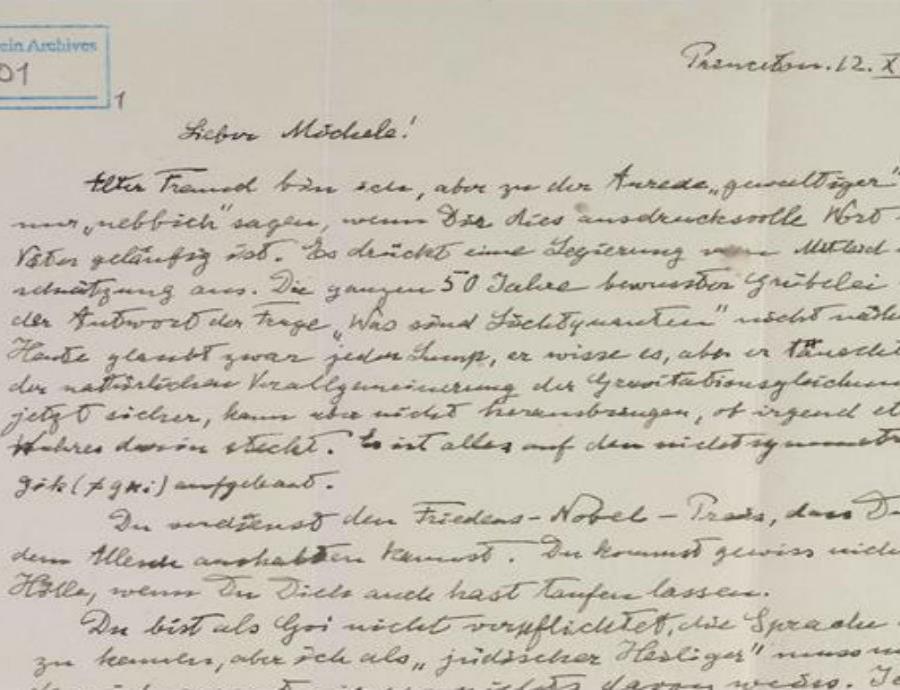 ein Archives
01
1
Princeton. 12. X
Lieber Michele!
Alter Freund bin ich, aber zu der Anrede „gewaltiger"
nur „nebbich" sagen, wenn Dir dies ausdrucksvolle Wort
Väter geläufig ist. Es drückt eine Legierung von Mitleid
schätzung aus. Die ganzen 50 Jahre bewusster Grübelei
der Antwort der Frage „Was sind Lichtquanten" nicht näh
Heute glaubt zwar jeder Lump, er wisse es, aber er täuscht
der natürlichen Verallgemeinerung der Gravitationsgleichun
jetzt sicher, kann aber nicht herausbringen, ob irgend et
Wahres darin steckt. Es ist alles auf dem nichtsymmetr
gik (≠ gki) aufgebaut.
Du verdienst den Friedens-Nobel-Preis, dass D
dem aushalten kannst. Du kommst gewiss nich
Hölle, wenn Du Dich auch hast taufen lassen.
Du bist als Goi nicht verpflichtet, die Sprache
zu kennen, aber ich als „jüdischer Heiliger" muss m
nichts davon weiss. I